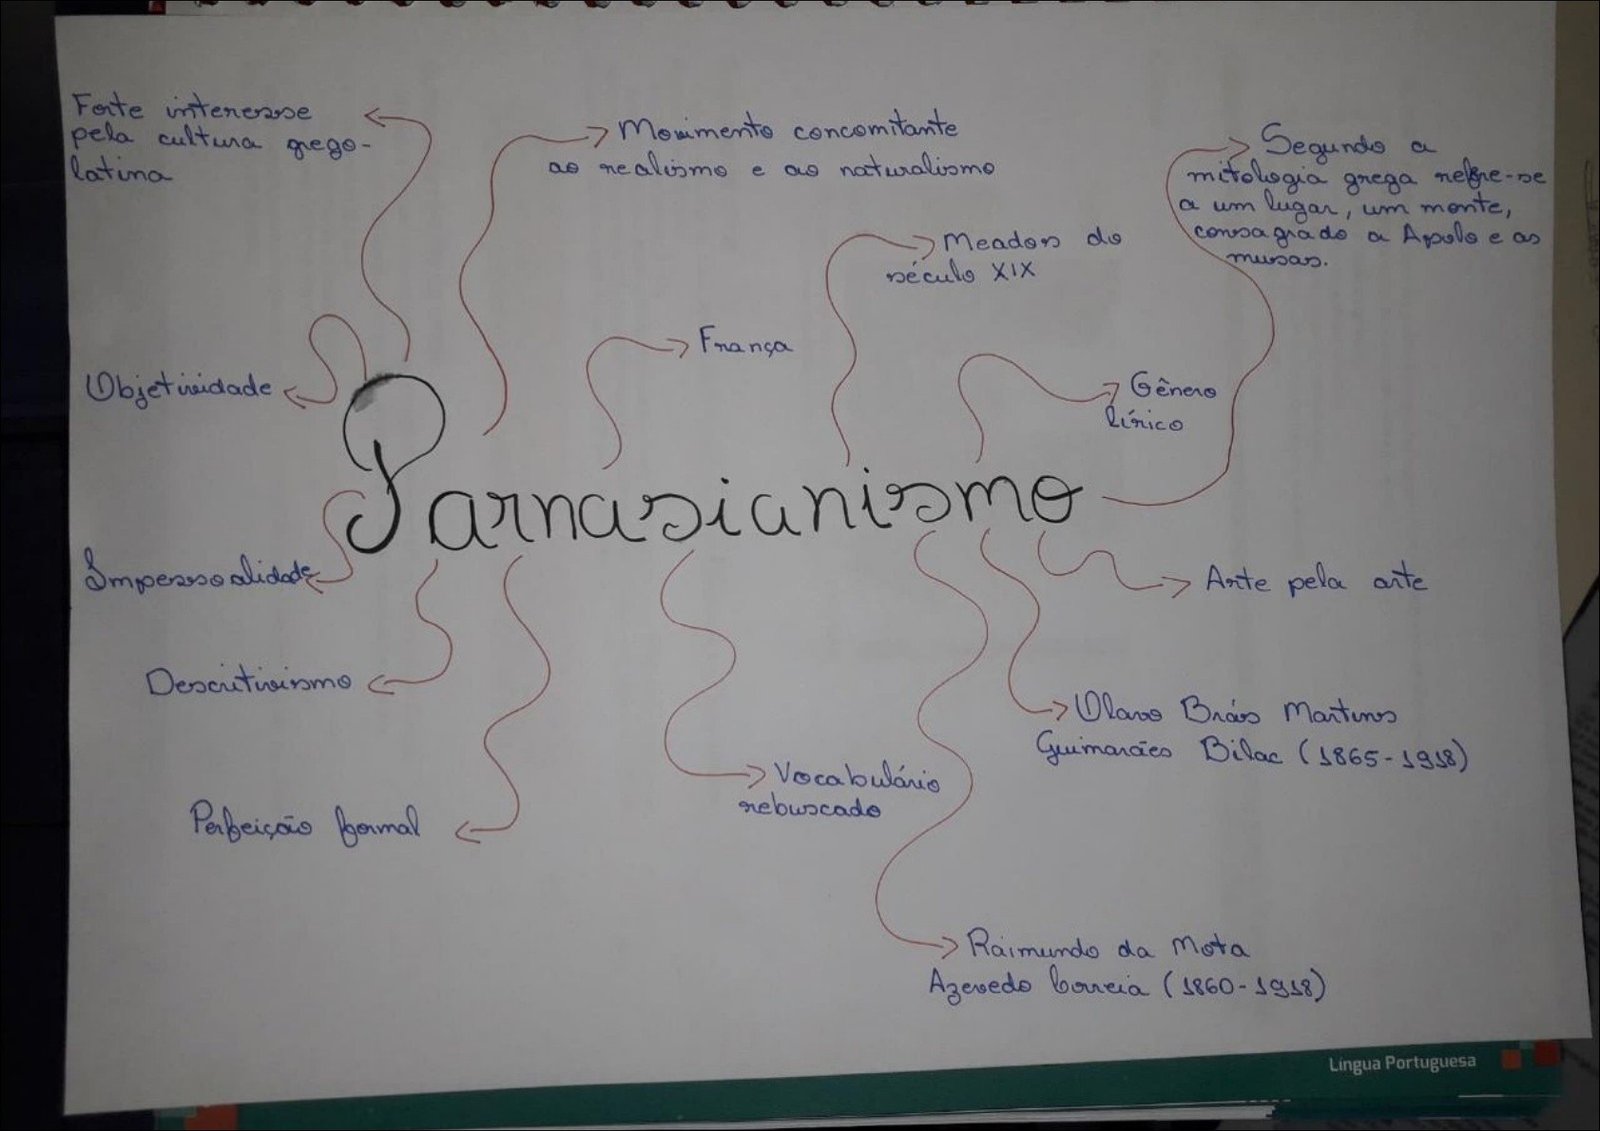 Forte interesse
pela cultura grego-
latina
Movimento concomitante
ao realismo e ao naturalismo
Segundo a
mitologia grega refere-se
a um lugar, um monte,
consagrado a Apolo e as
musas.
Meados do
século XIX
França
Objetividade
Gênero
lírico
Parnasianismo
Impessoalidade
Arte pela arte
Descritivismo
Olavo Brás Martins
Guimarães Bilac (1865-1918)
Vocabulário
rebuscado
Perfeição formal
Raimundo da Mota
Azevedo Correia (1860-1918)
Língua Portuguesa